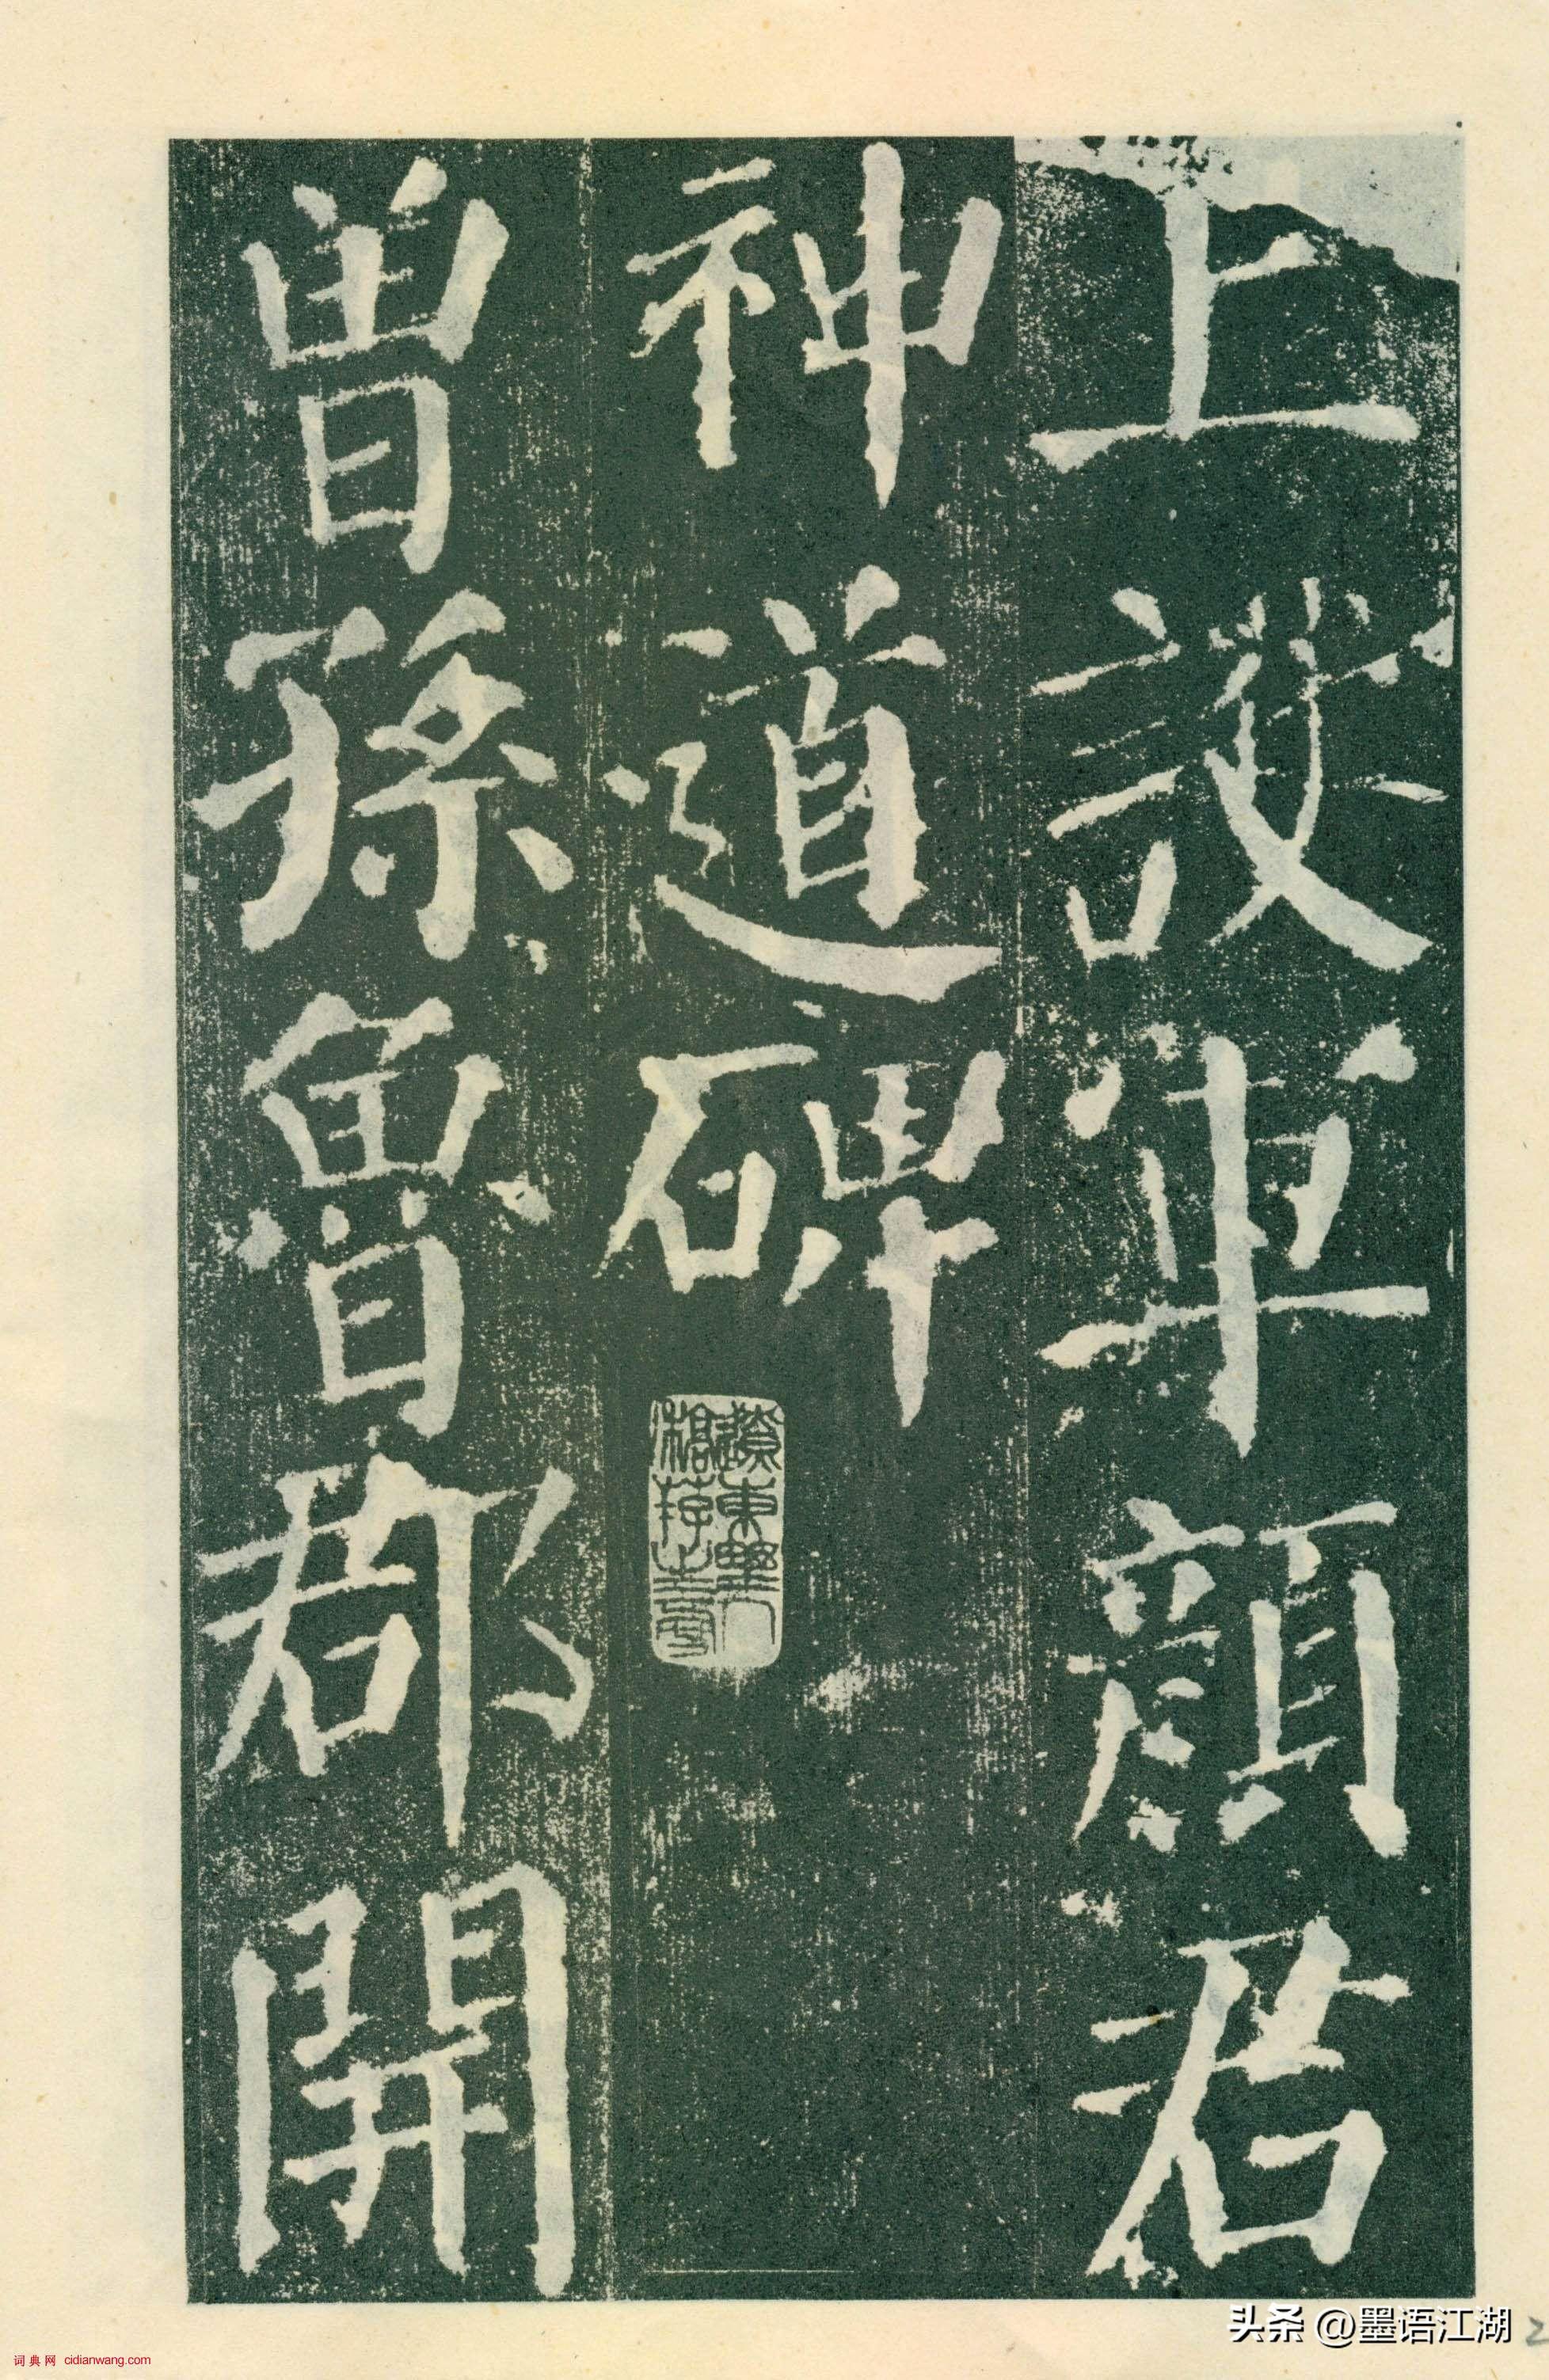 上護軍顔君
神道碑
曾孫魯郡開
头条 @墨语江湖
词典网 cidianwang.com
2